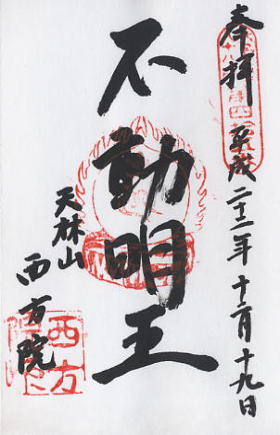 奉拝 平成二十二年十二月十九日
不動明王
天林山
西方院
西方